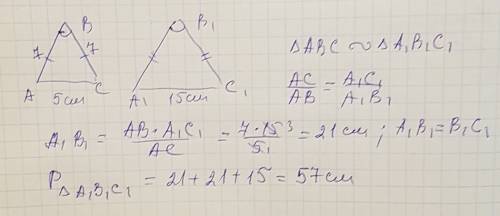 B B₁
7 7
A C A₁ C₁
5см 15см
ΔABC ∾ ΔA₁B₁C₁
AC/AB = A₁C₁/A₁B₁
A₁B₁ = AB · A₁C₁/AC = 7·15³/5₁ = 21 см ; A₁B₁ = B₁C₁
P ΔA₁B₁C₁ = 21+21+15 = 57 см